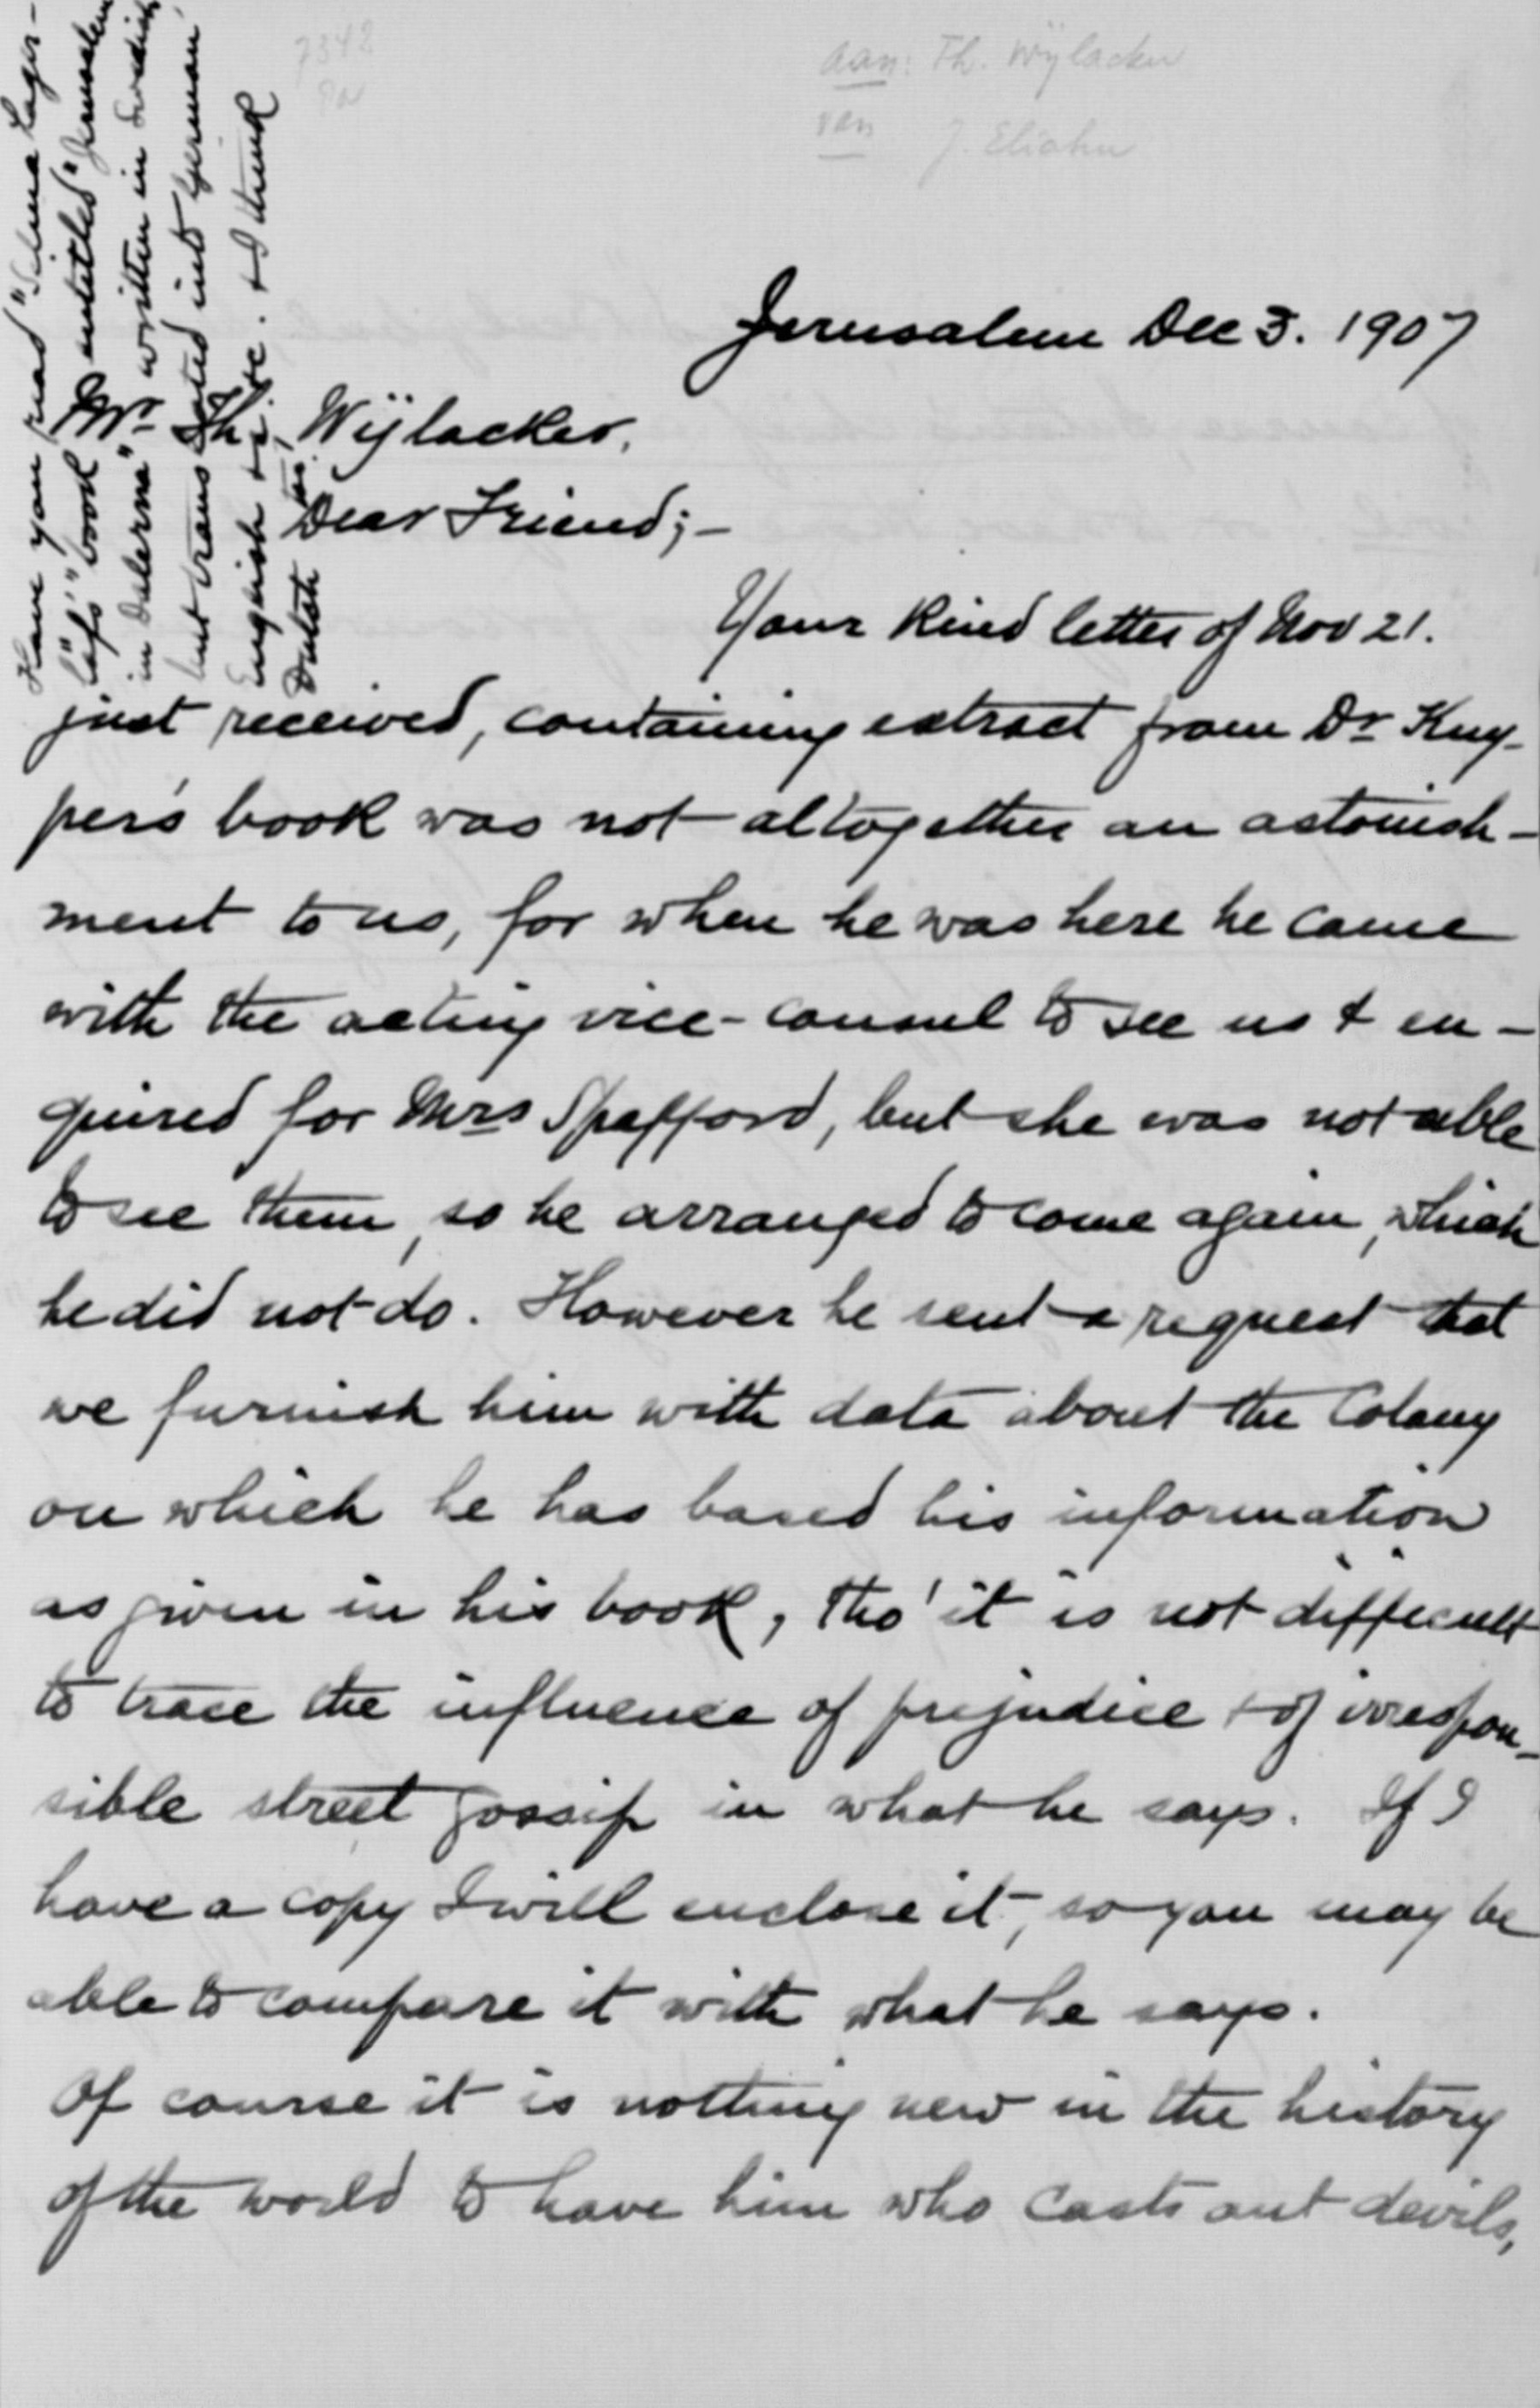 7348
aan: Th. Wÿlacker
van J. Eliahu
Have you read "Selma Lager-
löfs" book entitled "Jerusalem
in Dalerna" written in Swedish
but translated into German
English &c. &c. & I think
Dutch too.
Jerusalem Dec 3. 1907
Mr. Th. Wÿlacker,
Dear Friend;-
Your kind letter of Nov 21.
just received, containing extract from Dr Kuy-
per's book was not altogether an astonish-
ment to us, for when he was here he came
with the acting vice-consul to see us & en-
quired for Mrs Spafford, but she was not able
to see them, so he arranged to come again, which
he did not do. However he sent a request that
we furnish him with data about the Colony
on which he has based his information
as given in his book, tho' it is not difficult
to trace the influence of prejudice & of irrespon-
sible street gossip in what he says. If I
have a copy I will enclose it, so you may be
able to compare it with what he says.
Of course it is nothing new in the history
of the world to have him who casts out devils,